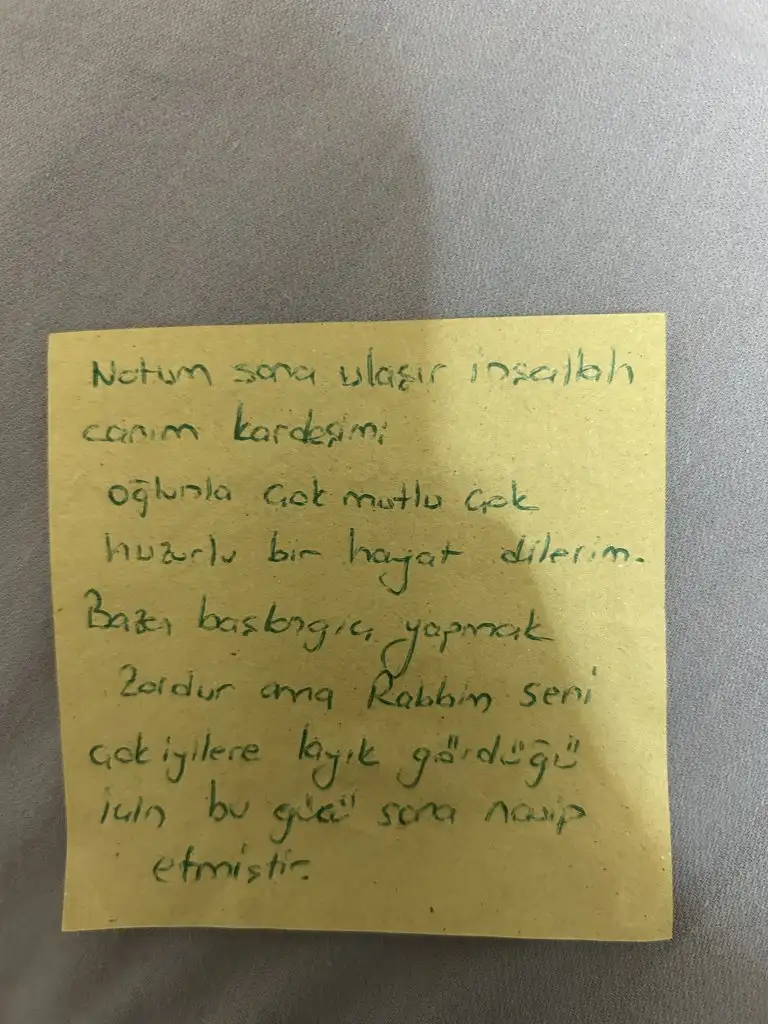 Notum sana ulaşır inşallah
canım kardeşim;
oğlunla çok mutlu çok
huzurlu bir hayat dilerim.
Bazen başlangıç yapmak
Zordur ama Rabbin seni
çok iyilere layık gördüğü
için bu gücü sana nasip
etmiştir.